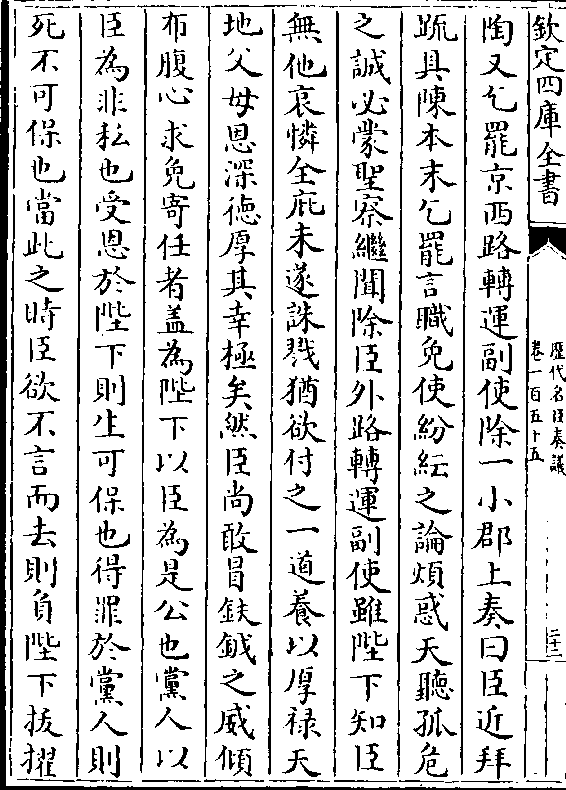 欽定四庫全書
歷代名臣奏議
卷一百五十五
二十二
陶又乞罷京西路轉運副使除一小郡上奏曰臣近拜
疏具陳本末乞罷言職免使紛紜之論煩惑天聽孤危
之誠必蒙聖察繼聞除臣外路轉運副使雖陛下知臣
無他哀憐全庇未遂誅戮猶欲付之一道養以厚祿天
地父母恩深德厚其幸極矣然臣尚敢冒鈇鉞之威傾
布腹心求免寄任者盖為陛下以臣為是公也黨人以
臣為非耘也受恩於陛下則生可保也得罪於黨人則
死不可保也當此之時臣欲不言而去則負陛下拔擢